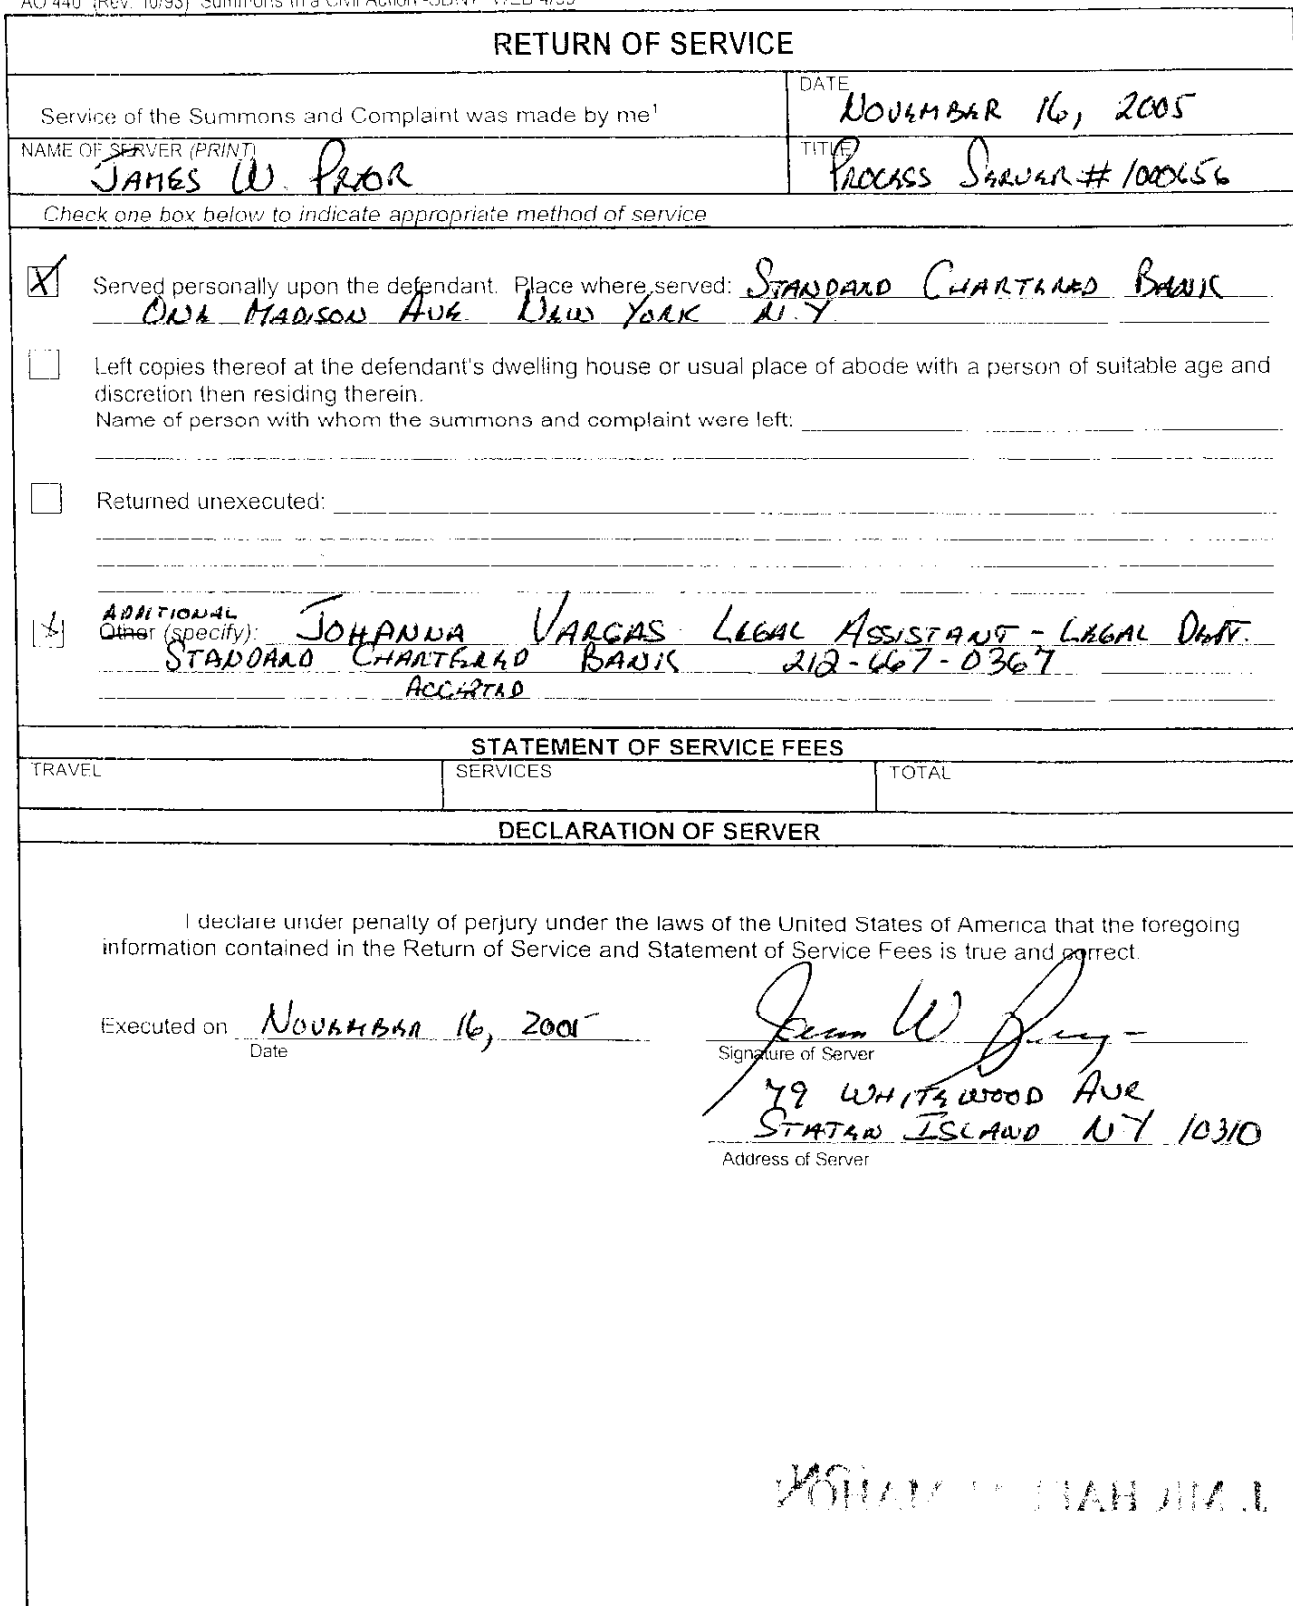 AO 440 (Rev. 10/93) Summons in a Civil Action -SDNY WEB 4/99
RETURN OF SERVICE
Service of the Summons and Complaint was made by me¹
DATE
NOVEMBER 16, 2005
NAME OF SERVER (PRINT)
JAMES W. PRIOR
TITLE
PROCESS SERVER # 1000656
Check one box below to indicate appropriate method of service
X Served personally upon the defendant. Place where served: STANDARD CHARTERED BANK
ONE MADISON AVE. NEW YORK N.Y.
Left copies thereof at the defendant's dwelling house or usual place of abode with a person of suitable age and
discretion then residing therein.
Name of person with whom the summons and complaint were left:
Returned unexecuted:
ADDITIONAL
X Other (specify): JOHANNA VARGAS LEGAL ASSISTANT - LEGAL DEPT.
STANDARD CHARTERED BANK 212-667-0367
ACCEPTED
STATEMENT OF SERVICE FEES
TRAVEL SERVICES TOTAL
DECLARATION OF SERVER
I declare under penalty of perjury under the laws of the United States of America that the foregoing
information contained in the Return of Service and Statement of Service Fees is true and correct.
Executed on NOVEMBER 16, 2005
Date
James W Prior
Signature of Server
79 WHITEWOOD AVE
STATEN ISLAND NY 10310
Address of Server